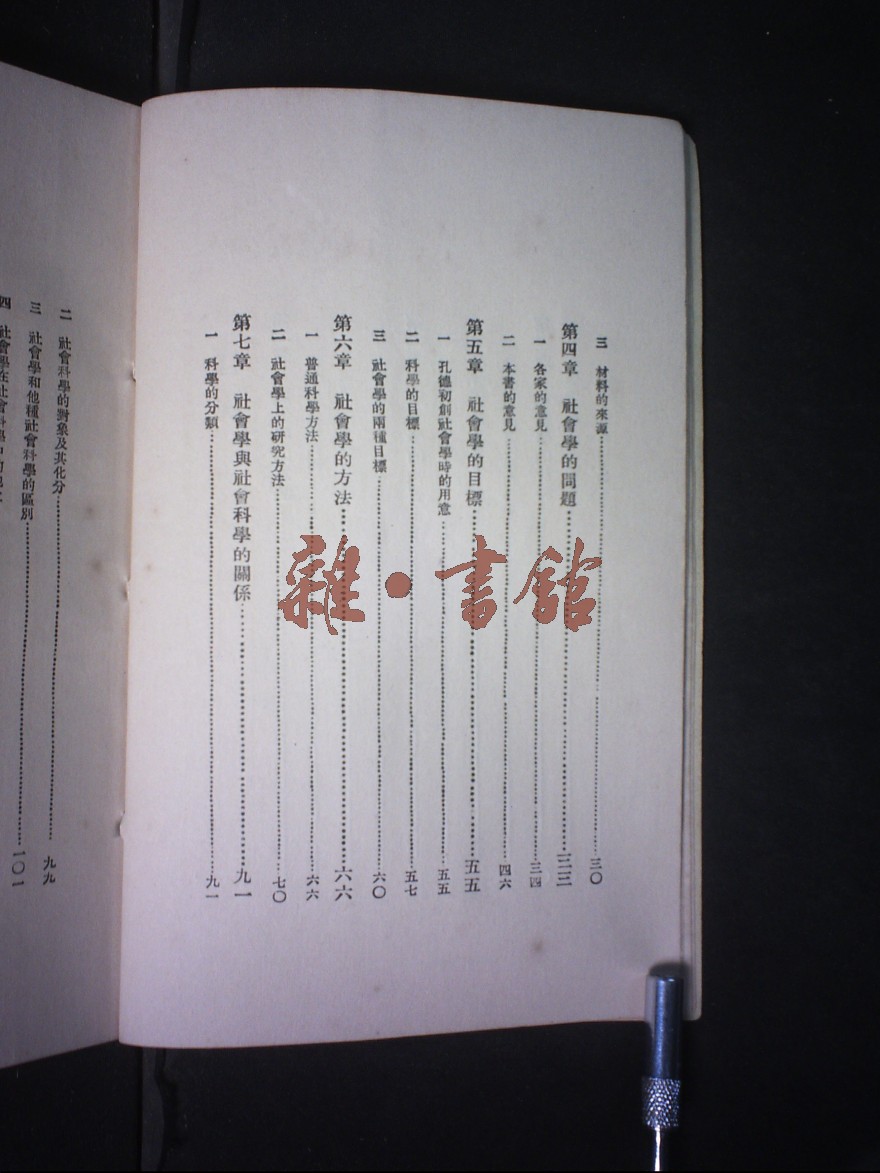 三 材料的來源……三〇
第四章 社會學的問題……三三
一 各家的意見……三四
二 本書的意見……四六
第五章 社會學的目標……五五
一 孔德初創社會學時的用意……五五
二 科學的目標……五七
三 社會學的兩種目標……六〇
第六章 社會學的方法……六六
一 普通科學方法……六六
二 社會學上的研究方法……七〇
第七章 社會學與社會科學的關係……九一
一 科學的分類……九一
二 社會科學的對象及其化分……九九
三 社會學和他種社會科學的區別……一〇一
四 社會學在社會科學中的
雜·書館